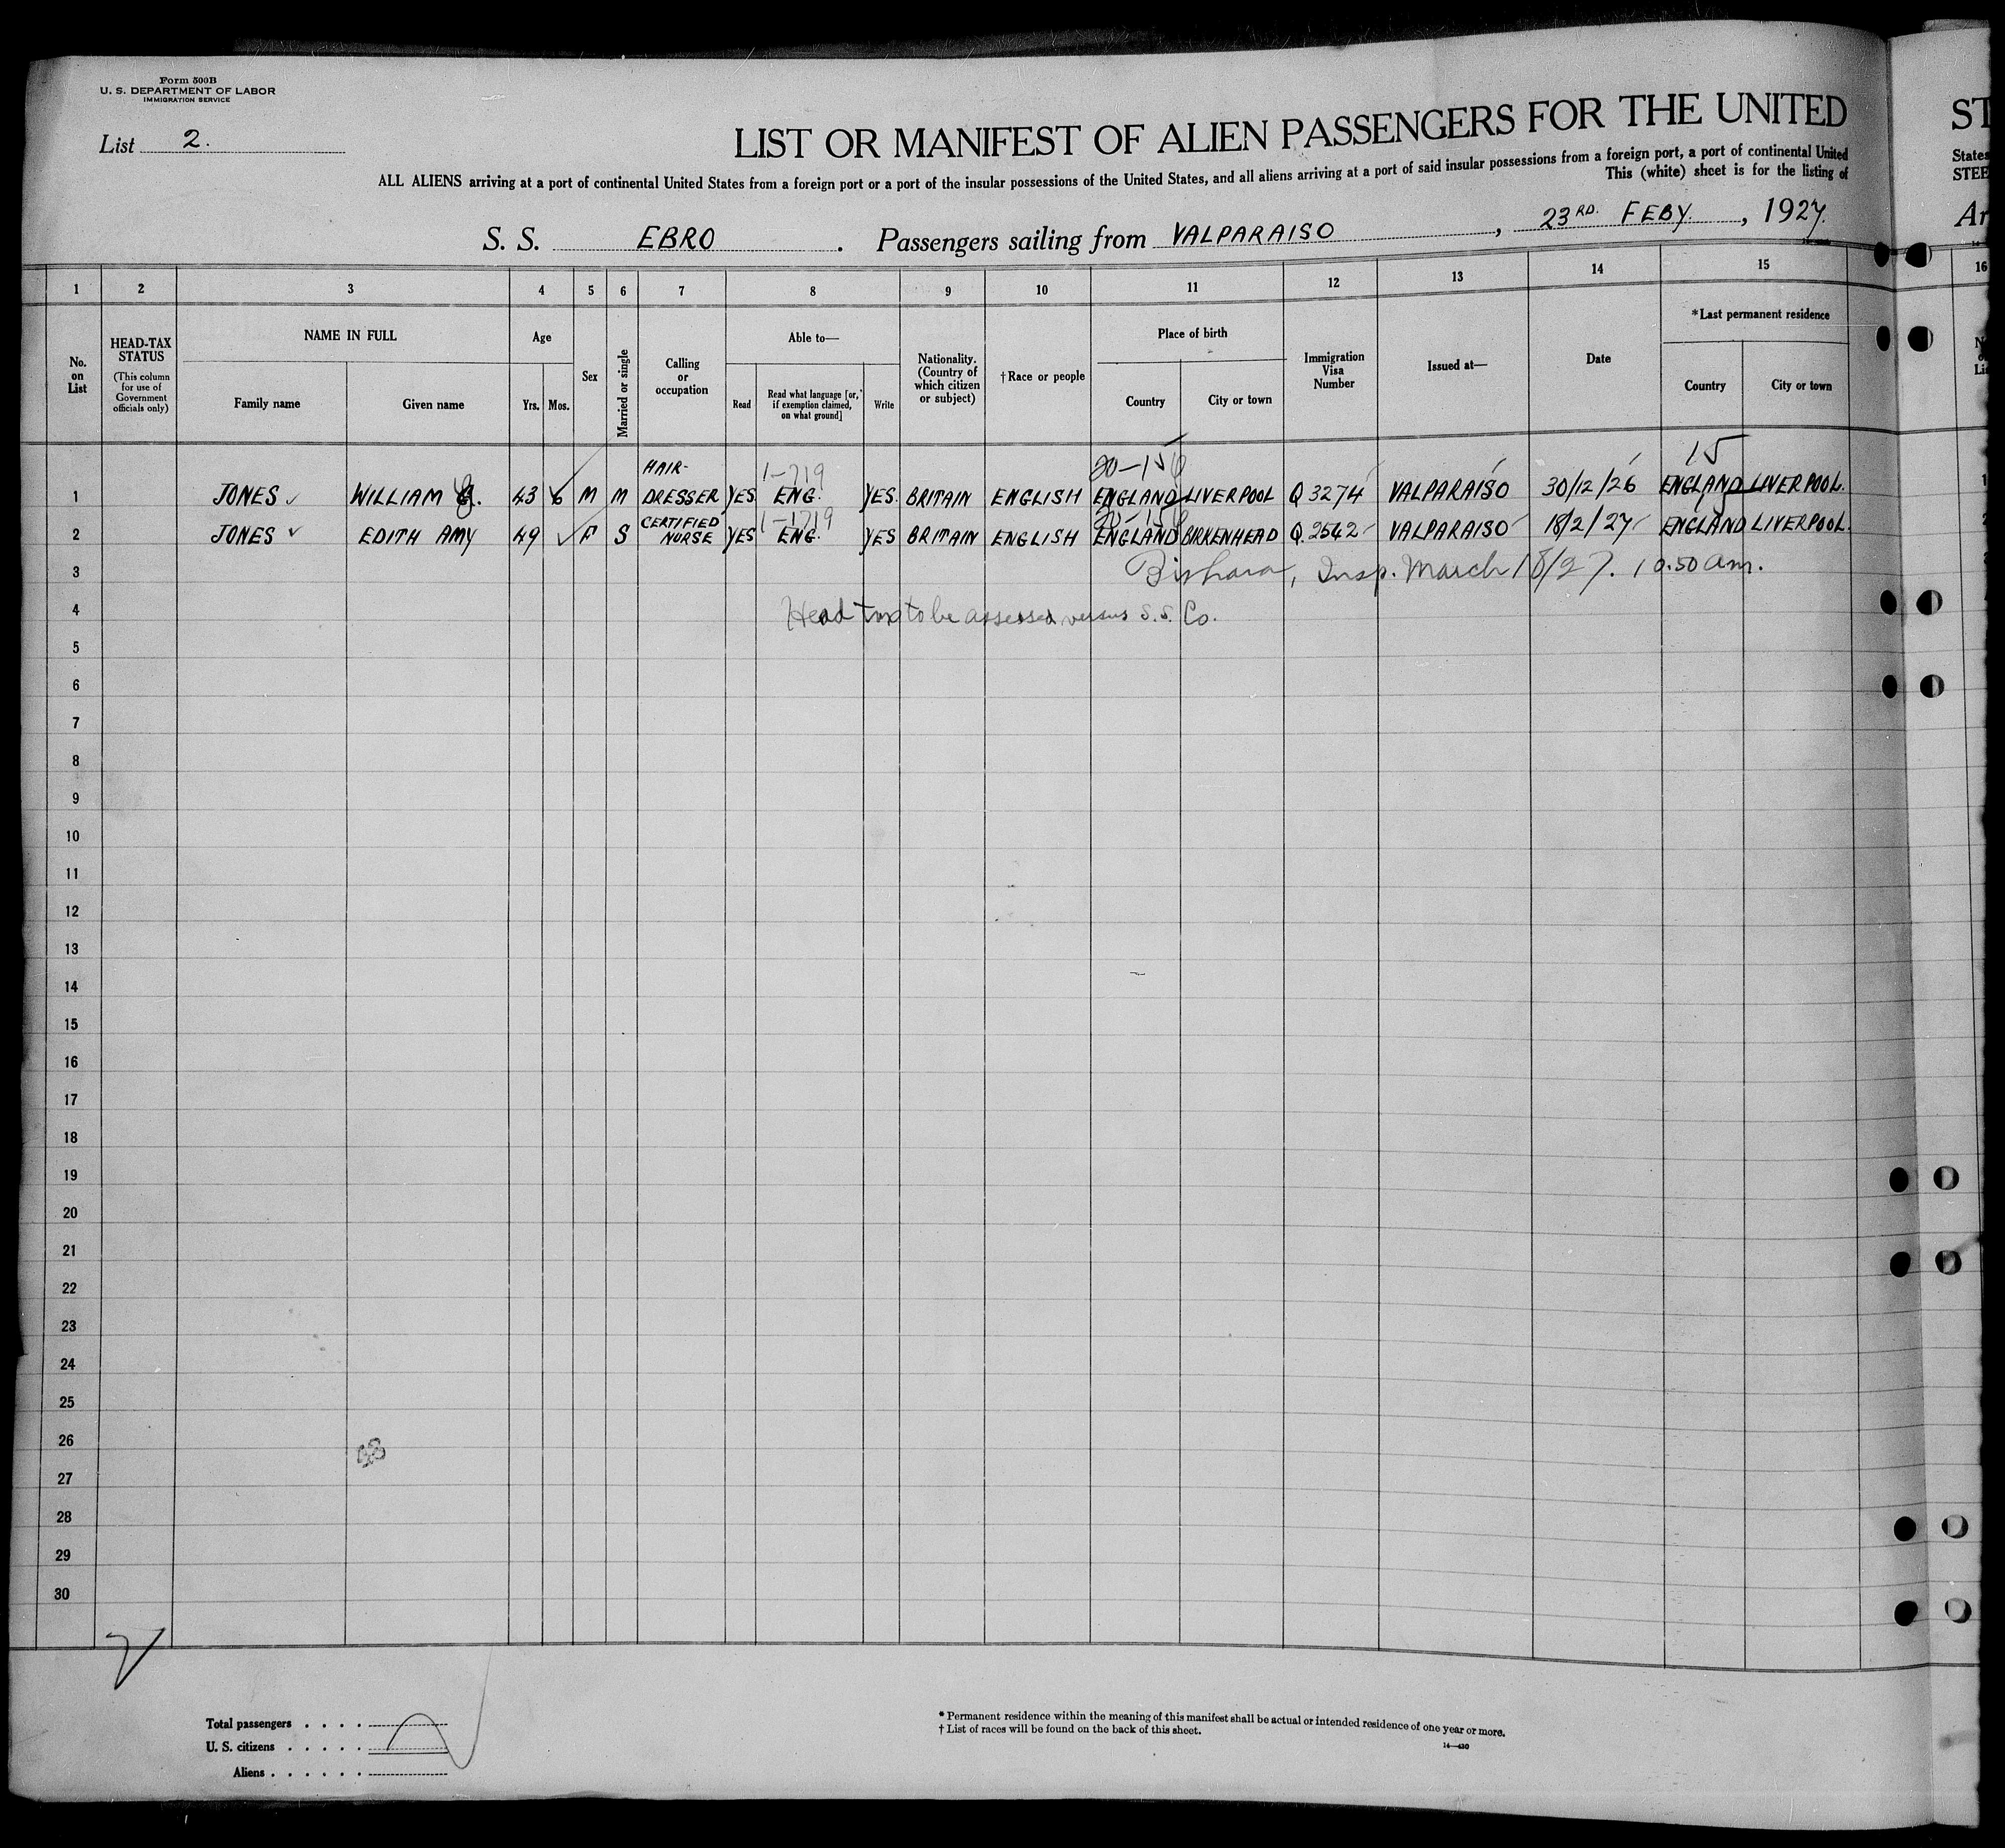 Form 500B
U. S. DEPARTMENT OF LABOR
IMMIGRATION SERVICE
List 2.
LIST OR MANIFEST OF ALIEN PASSENGERS FOR THE UNITED
ST
ALL ALIENS arriving at a port of continental United States from a foreign port or a port of the insular possessions of the United States, and all aliens arriving at a port of said insular possessions from a foreign port, a port of continental United
States
This (white) sheet is for the listing of
STEE
S. S. EBRO. Passengers sailing from VALPARAISO, 23RD. FEBY., 1927.
Ar
1 2 3 4 5 6 7 8 9 10 11 12 13 14 15 16
No. on List
HEAD-TAX STATUS
(This column for use of Government officials only)
NAME IN FULL
Family name Given name
Age
Yrs. Mos.
Sex
Married or single
Calling or occupation
Able to—
Read
Read what language [or, if exemption claimed, on what ground]
Write
Nationality. (Country of which citizen or subject)
†Race or people
Place of birth
Country City or town
Immigration Visa Number
Issued at—
Date
*Last permanent residence
Country City or town
1-719 20-15 15
1 JONES WILLIAM 43 6 M M HAIR-DRESSER YES ENG. YES. BRITAIN ENGLISH ENGLAND LIVERPOOL Q 3274 VALPARAISO 30/12/26 ENGLAND LIVERPOOL.
1-1719
2 JONES EDITH AMY 49 F S CERTIFIED NURSE YES ENG. YES BRITAIN ENGLISH ENGLAND BIRKENHEAD Q. 2542 VALPARAISO 18/2/27 ENGLAND LIVERPOOL.
3 Insp. March 18/27. 10.50 am.
4 Head tax to be assessed versus S.S. Co.
5
6
7
8
9
10
11
12
13
14
15
16
17
18
19
20
21
22
23
24
25
26
27
28
29
30
Total passengers . . . .
U. S. citizens . . . . .
Aliens . . . . . .
* Permanent residence within the meaning of this manifest shall be actual or intended residence of one year or more.
† List of races will be found on the back of this sheet.